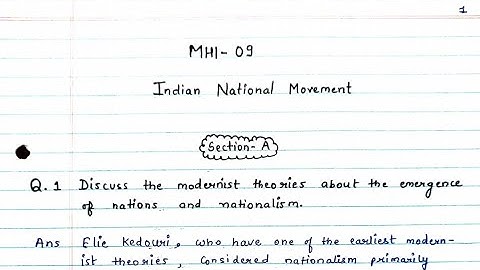 1
MHI-09
Indian National Movement
Section-A
Q.1 Discuss the modernist theories about the emergence
of nations and nationalism.
Ans Elie Kedouri, who have one of the earliest modern-
ist theories, considered nationalism primarily